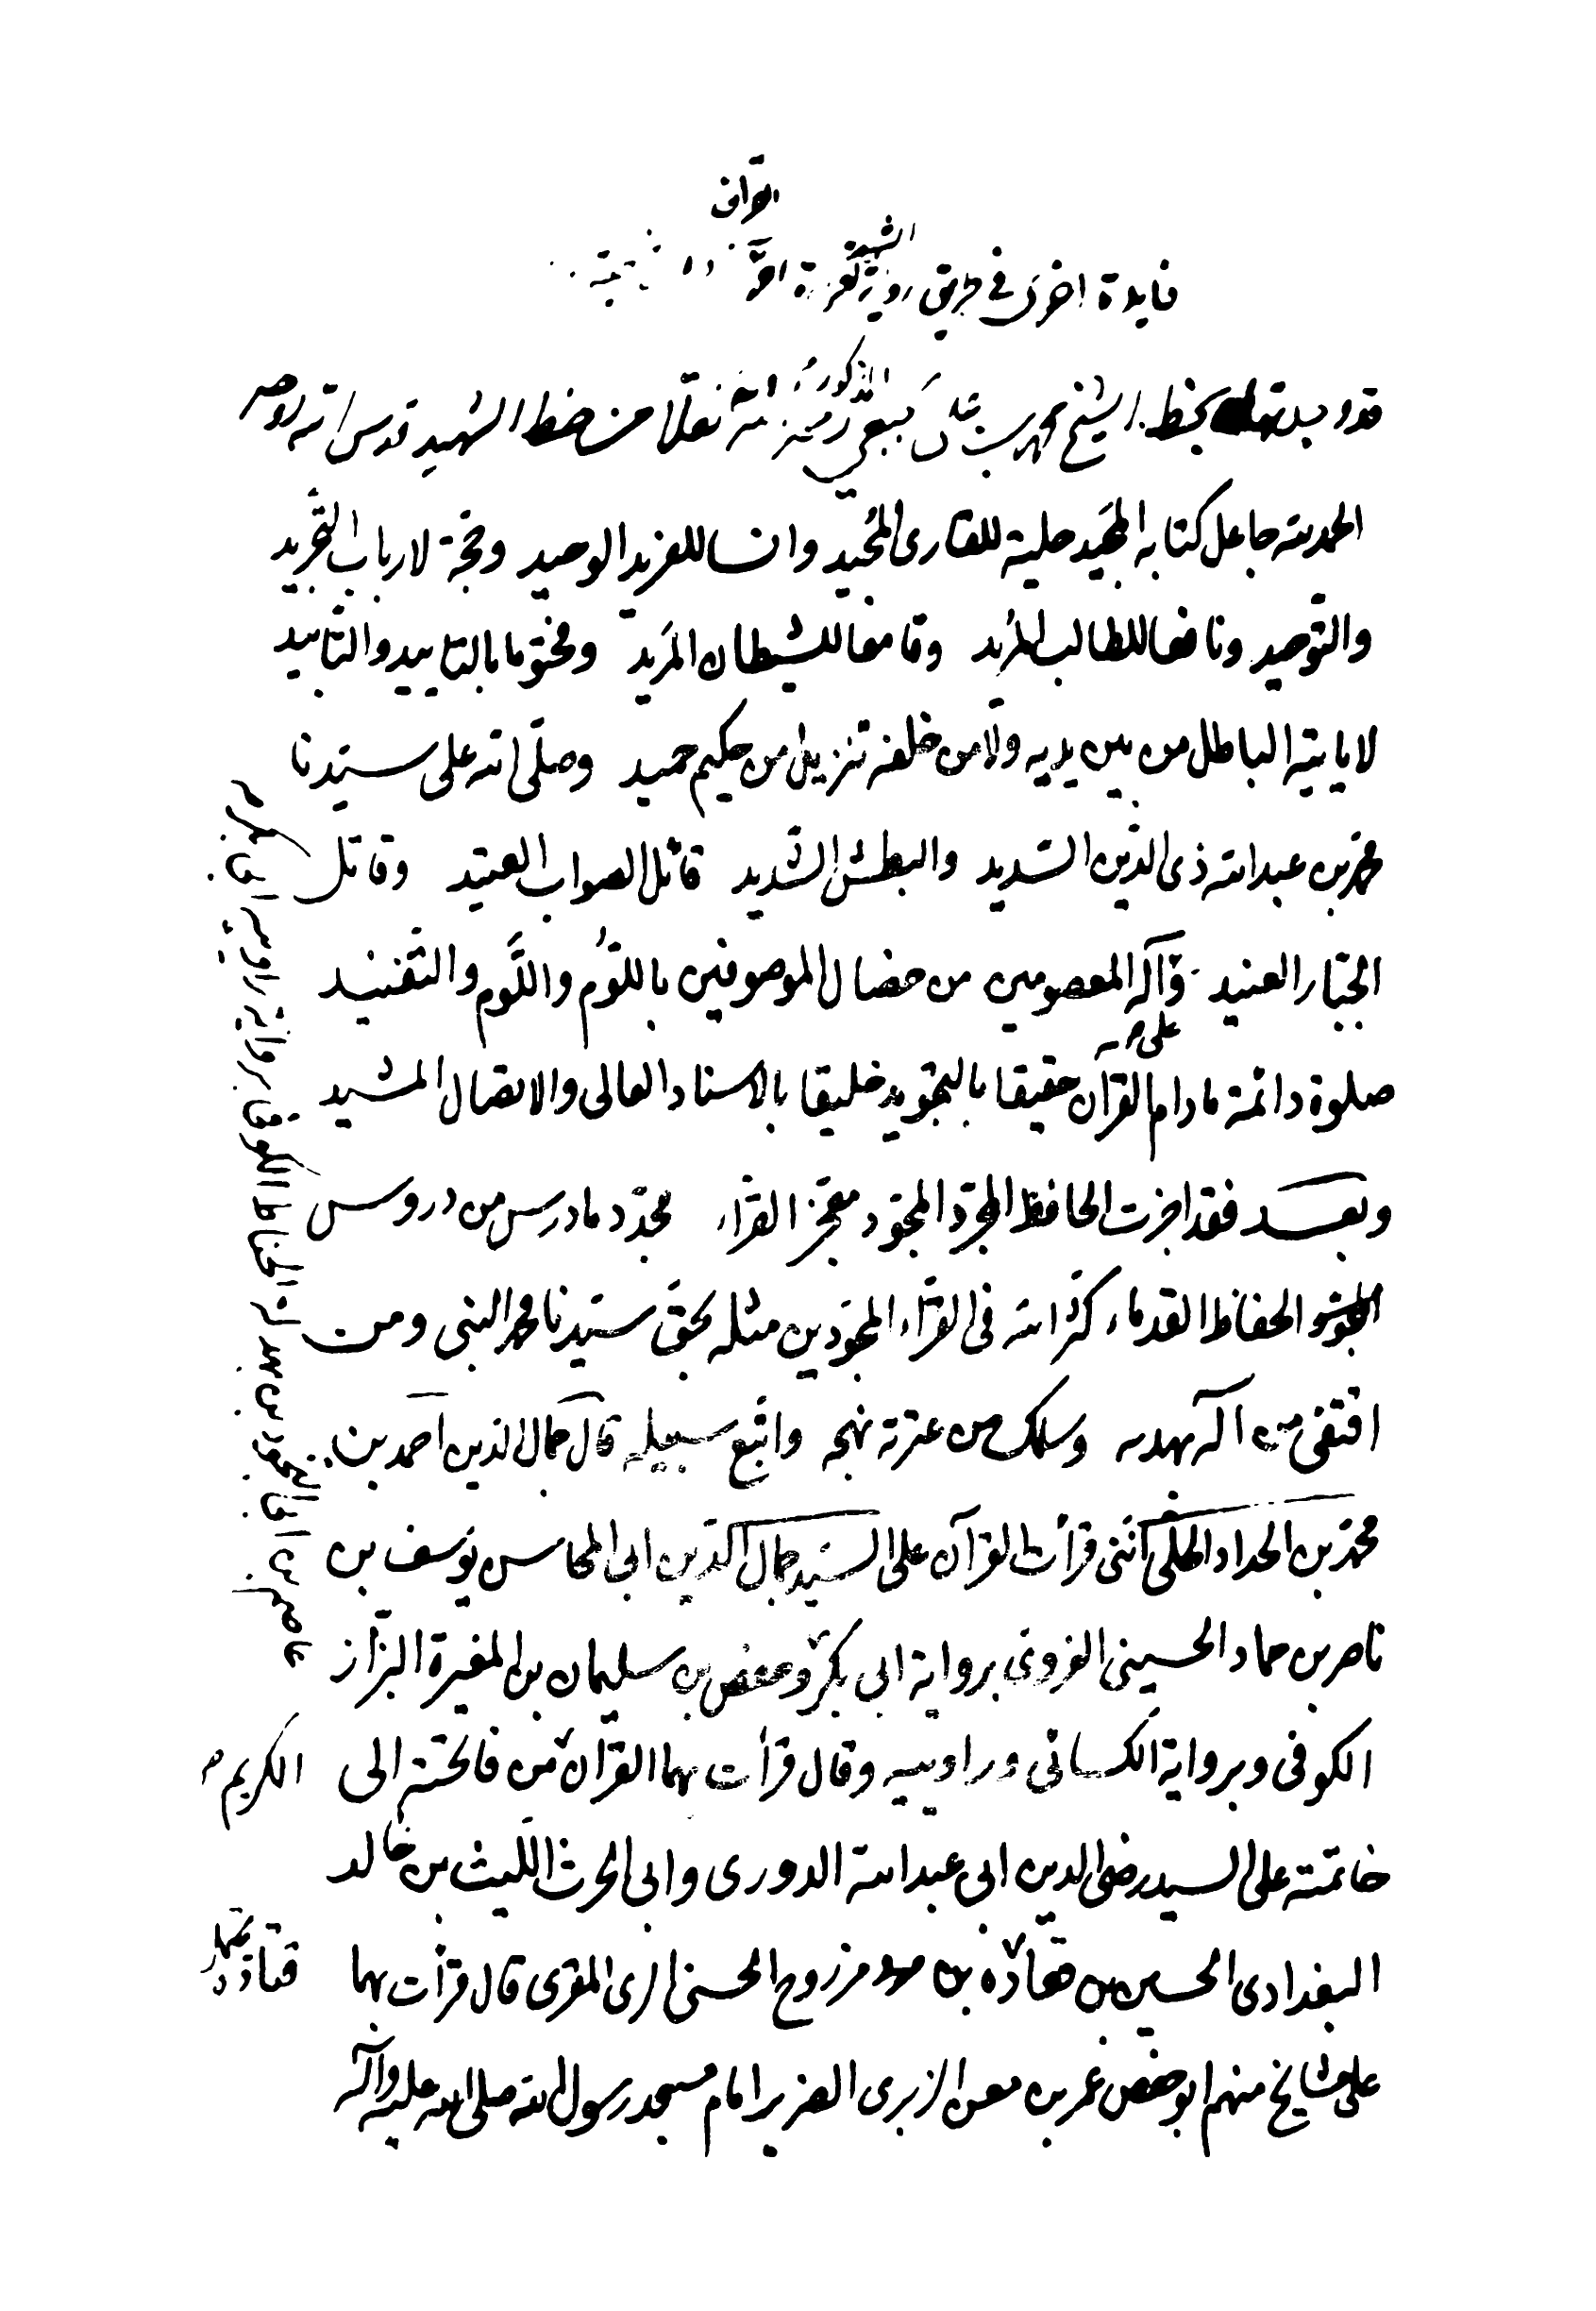 فايدة اخرى في طريق رواية الشهيد
قد وجدتها بخط الشيخ محمد بن علي الجبعي المذكور نقلا من خط الشهيد قدس الله روحه
الحمد لله جاعل كتابه المجيد حلية للقارى المجيد وانسا للفريد الوحيد وحجة لارباب التجريد
والتوحيد ونافعا للطالب المريد وقامعا للشيطان المريد ومختوما بالتاييد والتابيد
لا ياتيه الباطل من بين يديه ولا من خلفه تنزيل من حكيم حميد وصلّى الله على سيّدنا
محمّد بن عبد الله ذى الدّين السّديد والبطش الشّديد قائل الصواب العتيد وقاتل
الجبّار العنيد وآله المعصومين من خصال الموصوفين باللؤم واللّوم والتفنيد
صلوة دائمة مادام القرآن حقيقا بالتجويد خليقا بالاسناد العالى والاتصال المشيد
وبعد فقد اجزت الحافظ المجوّد معجز القرّاء مجدّد ما درس من دروس
الحفاظ القدماء كثّر الله فى القرّاء المجوّدين مثله بحقّ سيّدنا محمد النبى ومن
اقتفى من آله بهديه وسلك من عترته نهجه واتّبع سبيله قال جمال الدين احمد بن
محمّد بن الحداد الحلّى انّنى قرأت القرآن على السيّد جمال الدّين ابى المحاسن يوسف بن
ناصر بن حماد الحسينى الغروى برواية ابى بكر وحفص بن سليمان بن المغيرة البزّاز
الكوفى وبرواية الكسائى وراوييه وقال قرأت بهما القرآن من فاتحته الى
الكريم
خاتمته على السيد رضى الدين ابى عبد الله الدورى وابى الحرث اللّيث بن خالد
البغدادى الحسين بن قتادة بن مزروع الحسنى المقرى قال قرأت بهما
قتادة
على مشايخ منهم ابو حفص عمر بن معن الزبرى الضرير امام مسجد رسول الله صلى الله عليه وآله
عاصم بن ابى النجود بن بهدلة الحناط الكوفى برواية راوييه ابى بكر